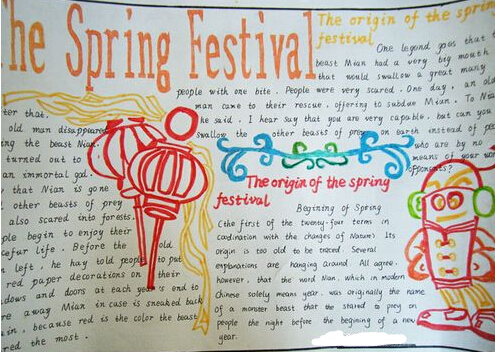 he Spring Festival
The origin of the sprin
festival
One legend goes that t
beast Nian had a very big mouth
that would swallow a great many
people with one bite. People were very scared. One day, an old
man came to their rescue, offering to subdue Nian. To Nia
he said. I hear say that you are very capable, but can you
swallow the other beasts of prey on earth instead of peo
who are by no
means of your wor
opponents?
ter that.
old man disappeared
ing the beast Nian.
turned out to
an immortal god.
that Nian is gone
other beasts of prey
also scared into forests.
ple begin to enjoy their
ceful life. Before the old
left, he hay told people to put
red paper decorations on their
dows and doors at each year's end to
re away Mian in case is sneaked back
ain, because red is the color the beast
red the most.
The origin of the spring
festival
Begining of Spring
(the first of the twenty-four terms in
coordination with the changes of Nature). Its
origin is too old to be traced. Several
explanations are hanging around. All agree,
however, that the word Nian, which in modern
Chinese solely means year, was originally the name
of a monster beast that the started to prey on
people the night before the begining of a new
year.